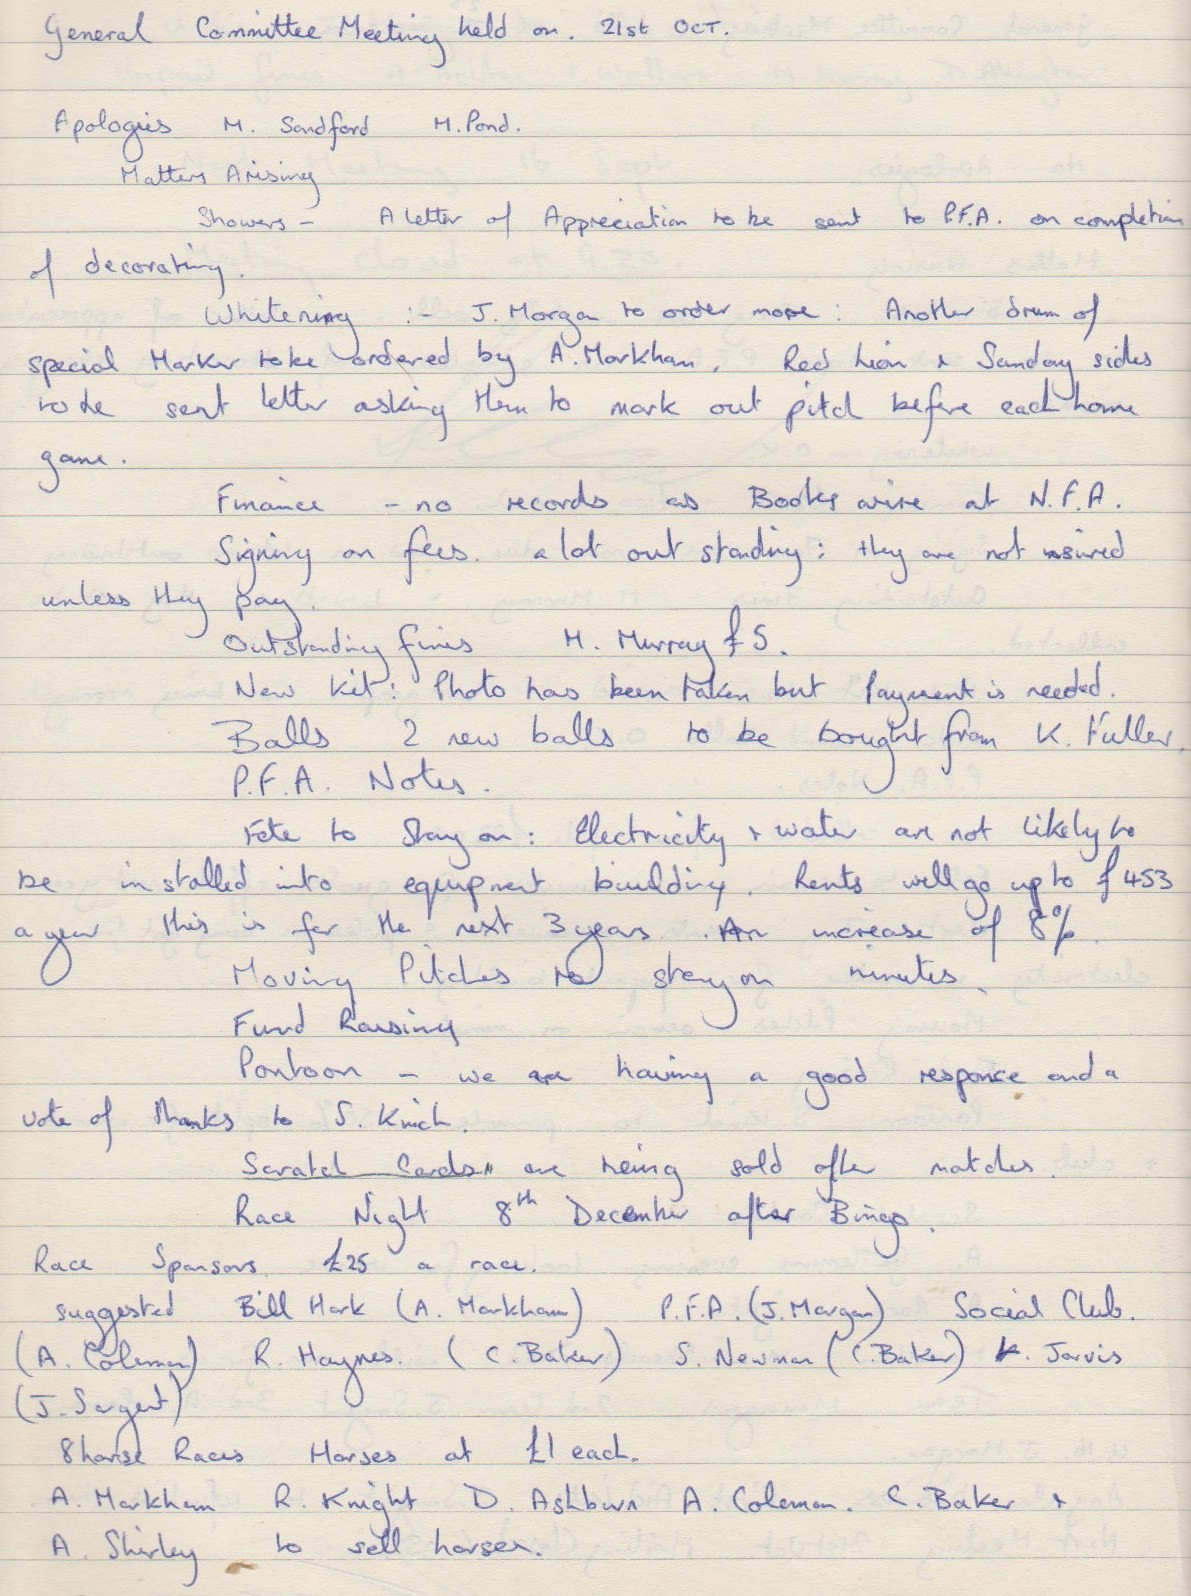 General Committee Meeting held on. 21st OCT.
Apologies M. Sandford M. Pond.
Matters Arising
Showers - A letter of Appreciation to be sent to P.F.A. on completion
of decorating.
Whitening :- J. Morgan to order more : Another drum of
special Marker to be ordered by A. Markham. Red Lion + Sunday sides
to be sent letter asking them to mark out pitch before each home
game.
Finance - no records as Books were at N.F.A.
Signing on fees. a lot out standing : they are not insured
unless they pay.
Outstanding fines M. Murray £5.
New Kit : Photo has been taken but Payment is needed.
Balls 2 new balls to be bought from K. Fuller.
P.F.A. Notes.
Fete to Stay on : Electricity + water are not likely to
be installed into equipment building. Rents will go up to £453
a year this is for the next 3 years. An increase of 8%.
Moving Pitches to stay on minutes.
Fund Raising
Pontoon - we are having a good response and a
vote of thanks to S. Kinch.
Scratch Cards are being sold after matches.
Race Night 8th December after Bingo.
Race Sponsors £25 a race.
suggested Bill Hark (A. Markham) P.F.A. (J. Morgan) Social Club.
(A. Coleman) R. Haynes. (C. Baker) S. Newman (C. Baker) K. Jarvis
(J. Sargent)
8 horse Races Horses at £1 each.
A. Markham R. Knight D. Ashburn A. Coleman. C. Baker +
A. Shirley to sell horses.